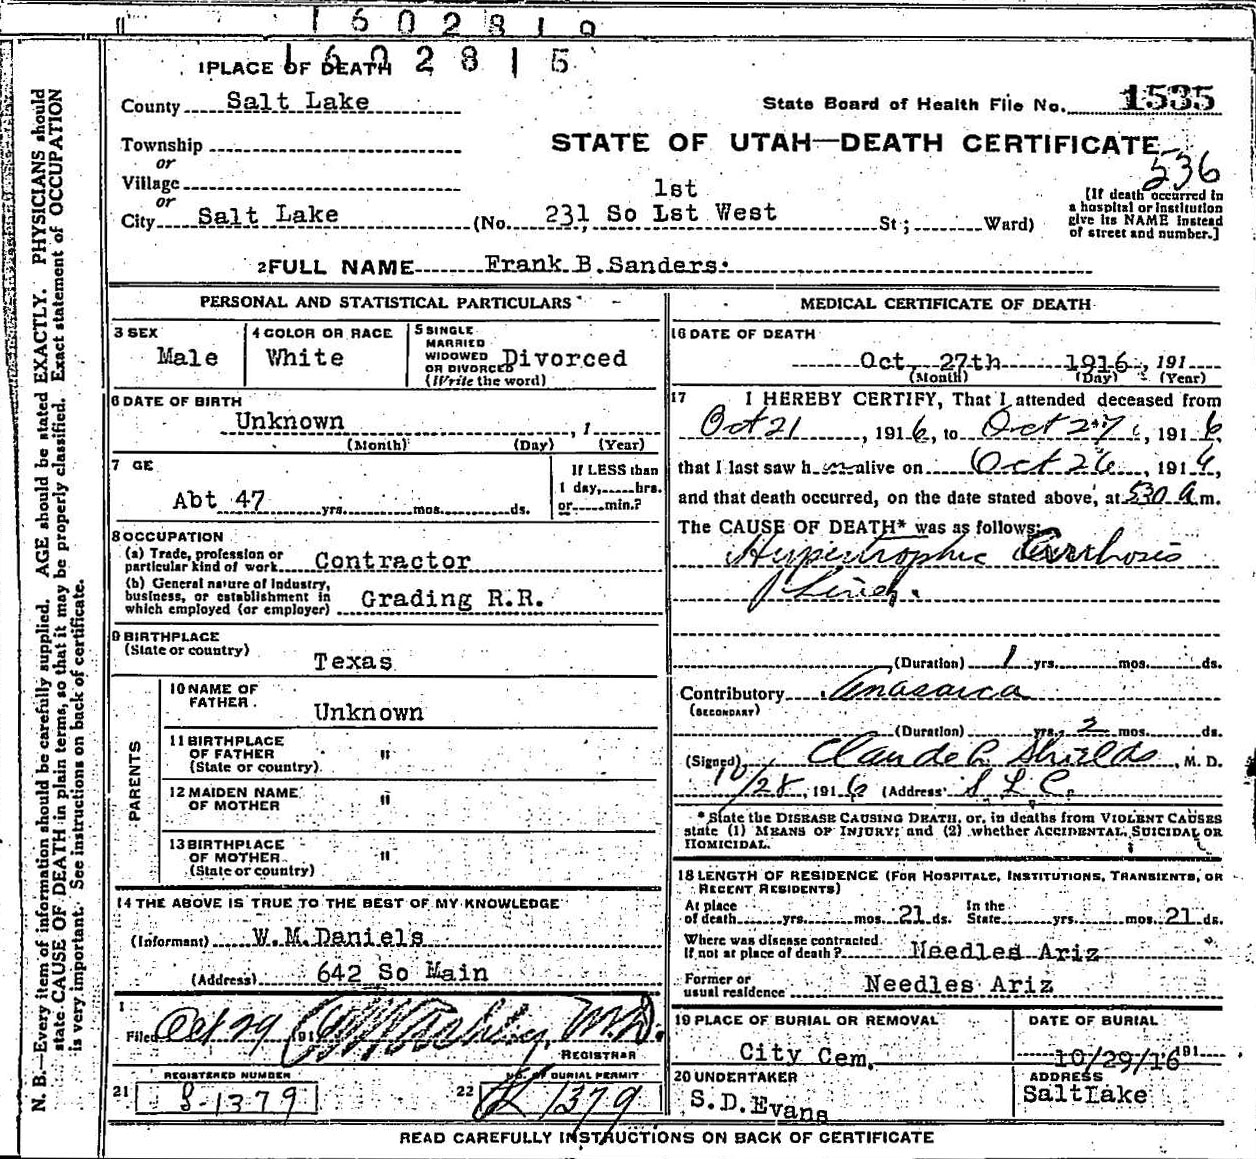 1602819
1602815
1 PLACE OF DEATH
County Salt Lake
State Board of Health File No. 1535
Township
or
STATE OF UTAH—DEATH CERTIFICATE
536
Village
or
1st
City Salt Lake (No. 231 So 1st West St; Ward)
[If death occurred in
a hospital or institution
give its NAME instead
of street and number.]
2 FULL NAME Frank B. Sanders.
PERSONAL AND STATISTICAL PARTICULARS
3 SEX
Male
4 COLOR OR RACE
White
5 SINGLE
MARRIED
WIDOWED
OR DIVORCED
(Write the word)
Divorced
6 DATE OF BIRTH
Unknown , 1
(Month) (Day) (Year)
7 GE
Abt 47 yrs. mos. ds.
If LESS than
1 day, hrs.
or min.?
8 OCCUPATION
(a) Trade, profession or
particular kind of work Contractor
(b) General nature of Industry,
business, or establishment in
which employed (or employer) Grading R.R.
9 BIRTHPLACE
(State or country)
Texas
PARENTS
10 NAME OF
FATHER
Unknown
11 BIRTHPLACE
OF FATHER "
(State or country)
12 MAIDEN NAME
OF MOTHER "
13 BIRTHPLACE
OF MOTHER "
(State or country)
14 THE ABOVE IS TRUE TO THE BEST OF MY KNOWLEDGE
(Informant) W.M.Daniels
(Address) 642 So Main
1
Filed Oct 29 191 M.D.
REGISTRAR
REGISTERED NUMBER
21 S-1379
NO. OF BURIAL PERMIT
22 1379
MEDICAL CERTIFICATE OF DEATH
16 DATE OF DEATH
Oct, 27th 1916, 191
(Month) (Day) (Year)
17 I HEREBY CERTIFY, That I attended deceased from
Oct 21, 1916, to Oct 27, 1916
that I last saw h im alive on Oct 26, 1916,
and that death occurred, on the date stated above, at 530 A m.
The CAUSE OF DEATH* was as follows:
Hypertrophic Cirrhosis
Liver.
(Duration) 1 yrs. mos. ds.
Contributory Anasarca
(SECONDARY)
(Duration) yrs. 2 mos. ds.
(Signed) Claude L Shields, M. D.
10/28, 1916 (Address) S L C.
*State the DISEASE CAUSING DEATH, or, in deaths from VIOLENT CAUSES
state (1) MEANS OF INJURY; and (2) whether ACCIDENTAL, SUICIDAL OR
HOMICIDAL.
18 LENGTH OF RESIDENCE (FOR HOSPITALS, INSTITUTIONS, TRANSIENTS, OR
RECENT RESIDENTS)
At place
of death yrs. mos. 21 ds.
In the
State yrs. mos. 21 ds.
Where was disease contracted
If not at place of death? Needles Ariz
Former or
usual residence Needles Ariz
19 PLACE OF BURIAL OR REMOVAL
City Cem.
DATE OF BURIAL
10/29/16 191
20 UNDERTAKER
S.D.Evans
ADDRESS
SaltLake
READ CAREFULLY INSTRUCTIONS ON BACK OF CERTIFICATE
N. B.—Every item of information should be carefully supplied. AGE should be stated EXACTLY. PHYSICIANS should
state CAUSE OF DEATH in plain terms, so that it may be properly classified. Exact statement of OCCUPATION
is very important. See instructions on back of certificate.